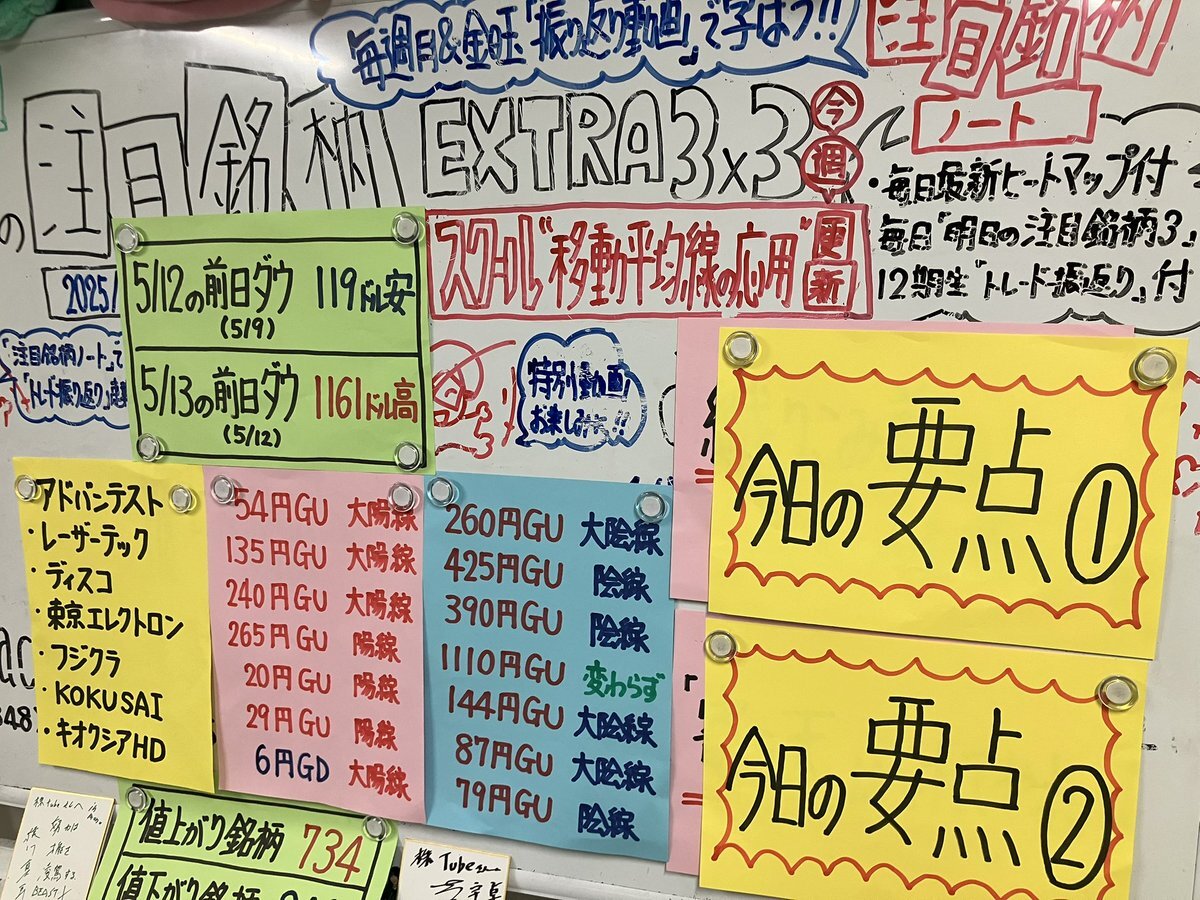 毎週月&金曜「振り返り動画」で学ぼう!!
注目銘柄
ノート
の注目銘柄 EXTRA3×3
今週
スクール"移動平均線の応用"更新
・毎日最新ヒートマップ付
毎日「明日の注目銘柄3」
12期生「トレード振返り」付
2025/
「注目銘柄ノート」で
特別動画
お楽しみに!!
5/12の前日ダウ 119ドル安
(5/9)
5/13の前日ダウ 1161ドル高
(5/12)
・アドバンテスト 54円GU 大陽線 260円GU 大陰線
・レーザーテック 135円GU 大陽線 425円GU 陰線
・ディスコ 240円GU 大陽線 390円GU 陰線
・東京エレクトロン 265円GU 陽線 1110円GU 変わらず
・フジクラ 20円GU 陽線 144円GU 大陰線
・KOKUSAI 29円GU 陽線 87円GU 大陰線
・キオクシアHD 6円GD 大陽線 79円GU 陰線
今日の要点①
今日の要点②
値上がり銘柄 734
値下がり銘柄
株Tube